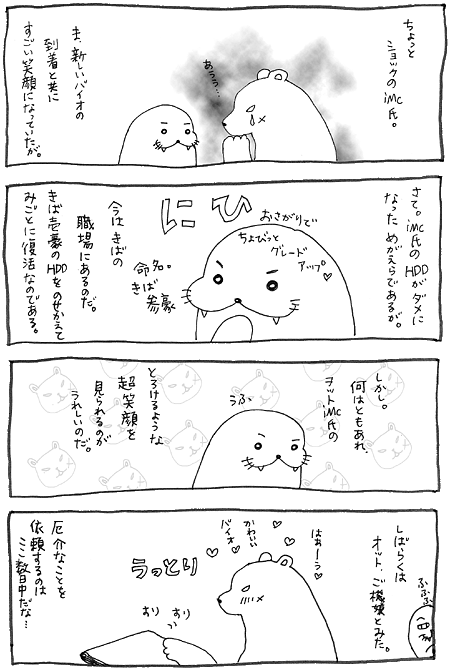 ちょっと
ショックの
iMC氏。
あうう…
ま、新しいバイオの
到着と共に
すごい笑顔になっていたが。
さて。iMC氏の HDDがダメに
なった めがえらであるが。
おさがりで
ちょびっと
グレード
アップ♥
にひ
命名。
きば
参豪
今は きばの
職場にあるのだ。
きば壱豪の HDDをのせかえて
みごとに復活なのである。
しかし。
何はともあれ、
ヲットiMC氏の
うふっ
とろけるような
超笑顔を
見られるのが
うれしいのだ。
しばらくは
オット、ご機嫌とみた。
ふふふ
はぁーう♡
かわいい
バイオ♡
うっとり
すり すり
厄介なことを
依頼するのは
ここ数日中だな…